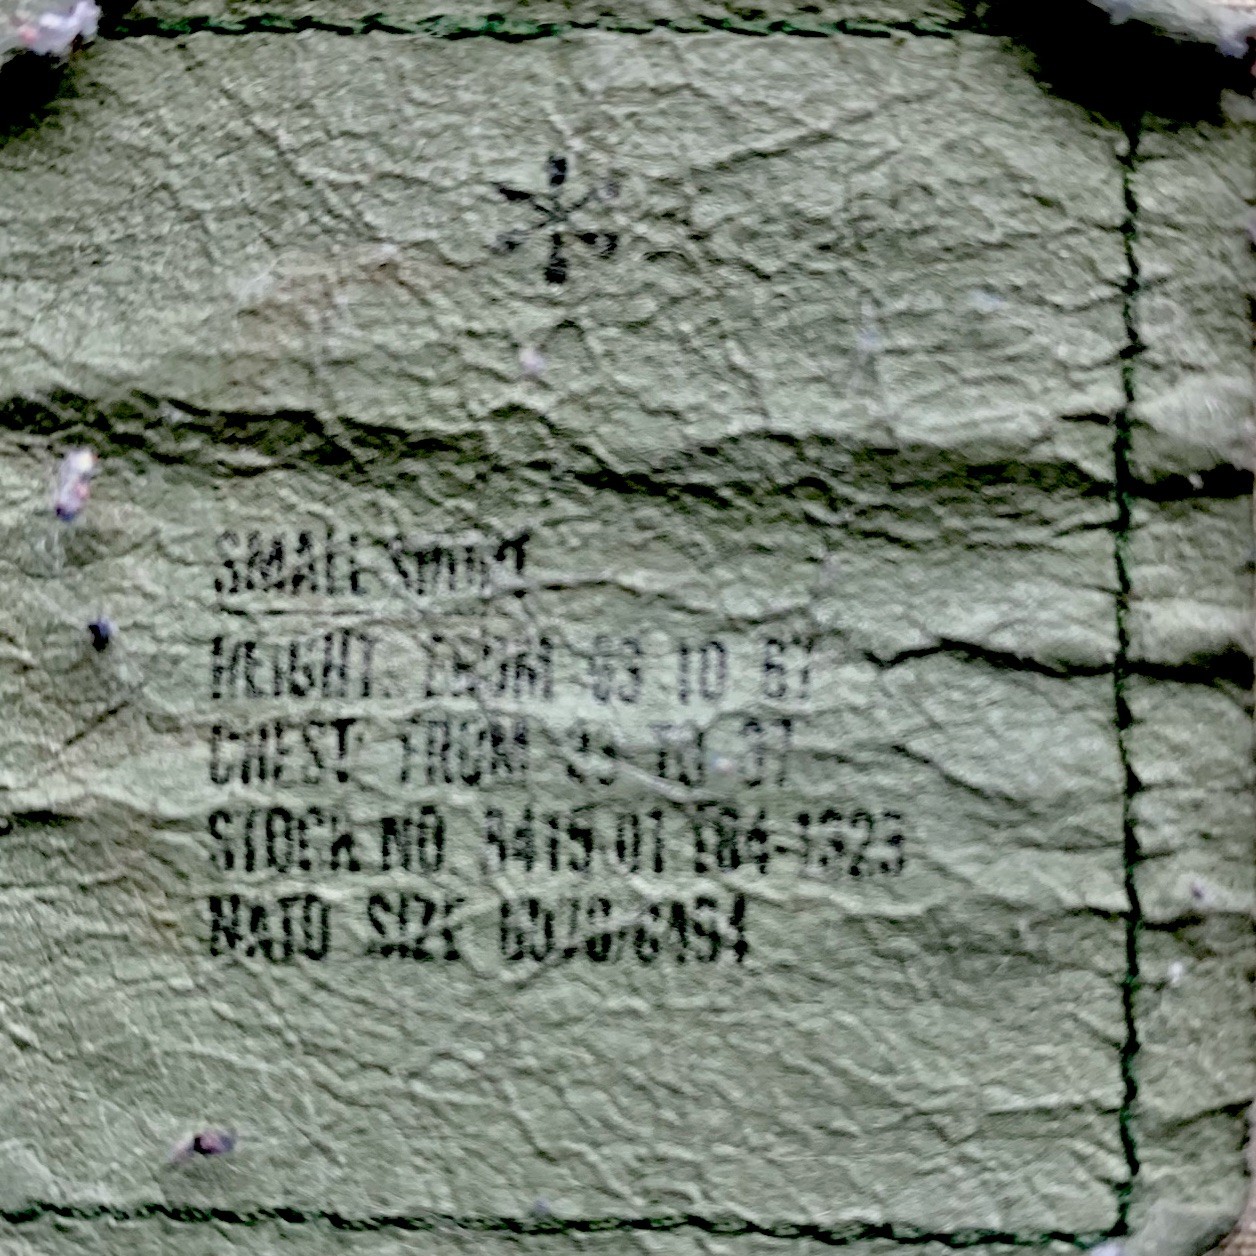 SMALL SHORT
HEIGHT: FROM 63 TO 67
CHEST: FROM 33 TO 37
STOCK NO. 8415 01 184-1323
NATO SIZE